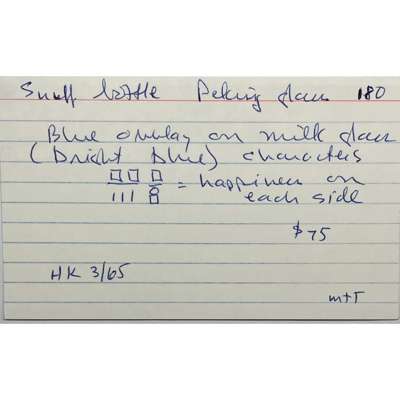 Snuff bottle Peking glass 180
Blue overlay on milk glass
(bright blue) characters
= happiness on
each side
$75
HK 3/65
m+T